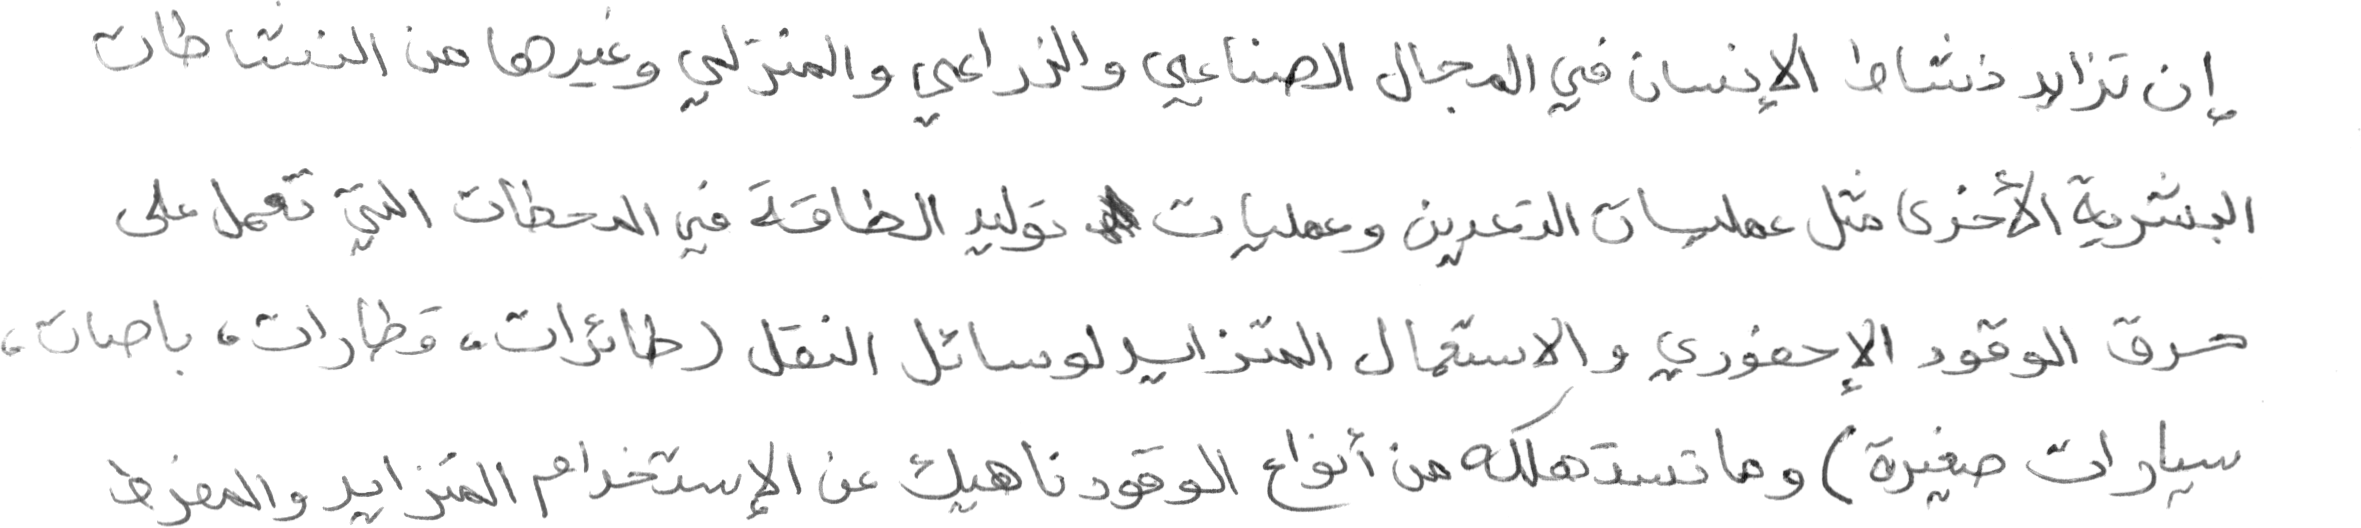 إن تزايد نشاط الإنسان في المجال الصناعي والزراعي والمنزلي وغيرها من النشاطات
البشرية الأخرى مثل عمليات التعدين وعمليات توليد الطاقة في المحطات التي تعمل على
حرق الوقود الإحفوري والاستعمال المتزايد لوسائل النقل (طائرات، قطارات، باصات،
سيارات صغيرة) وما تستهلكه من أنواع الوقود ناهيك عن الإستخدام المتزايد والمفرط